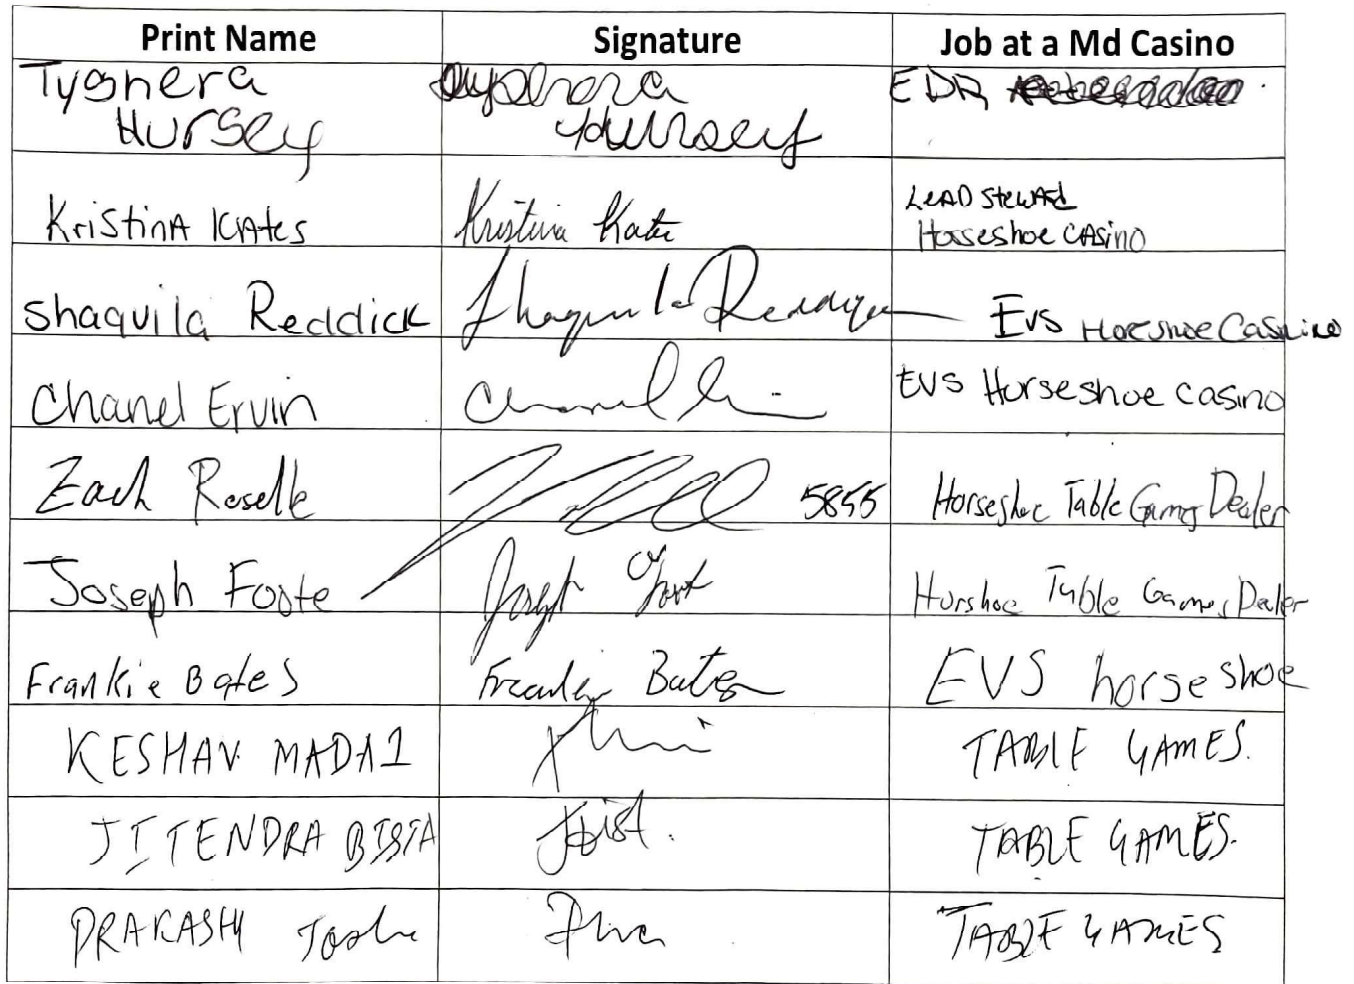 Print Name Signature Job at a Md Casino
Tyshera EDR
Hursey Hursey
Kristina Kates Kristina Kates Lead Steward
Horseshoe Casino
Shaquila Reddick Shaquila Reddick EVS Horeshoe Casino
Chanel Ervin Chanel EVS Horseshoe Casino
Zach Roselle 5855 Horseshoe Table Games Dealer
Joseph Foote Joseph Foot Horshoe Table Games Dealer
Frankie Bates Frankie Bates EVS horse shoe
KESHAV MADAI TABLE GAMES.
JITENDRA BISTA JBist. TABLE GAMES.
PRAKASH Joshi TABLE GAMES